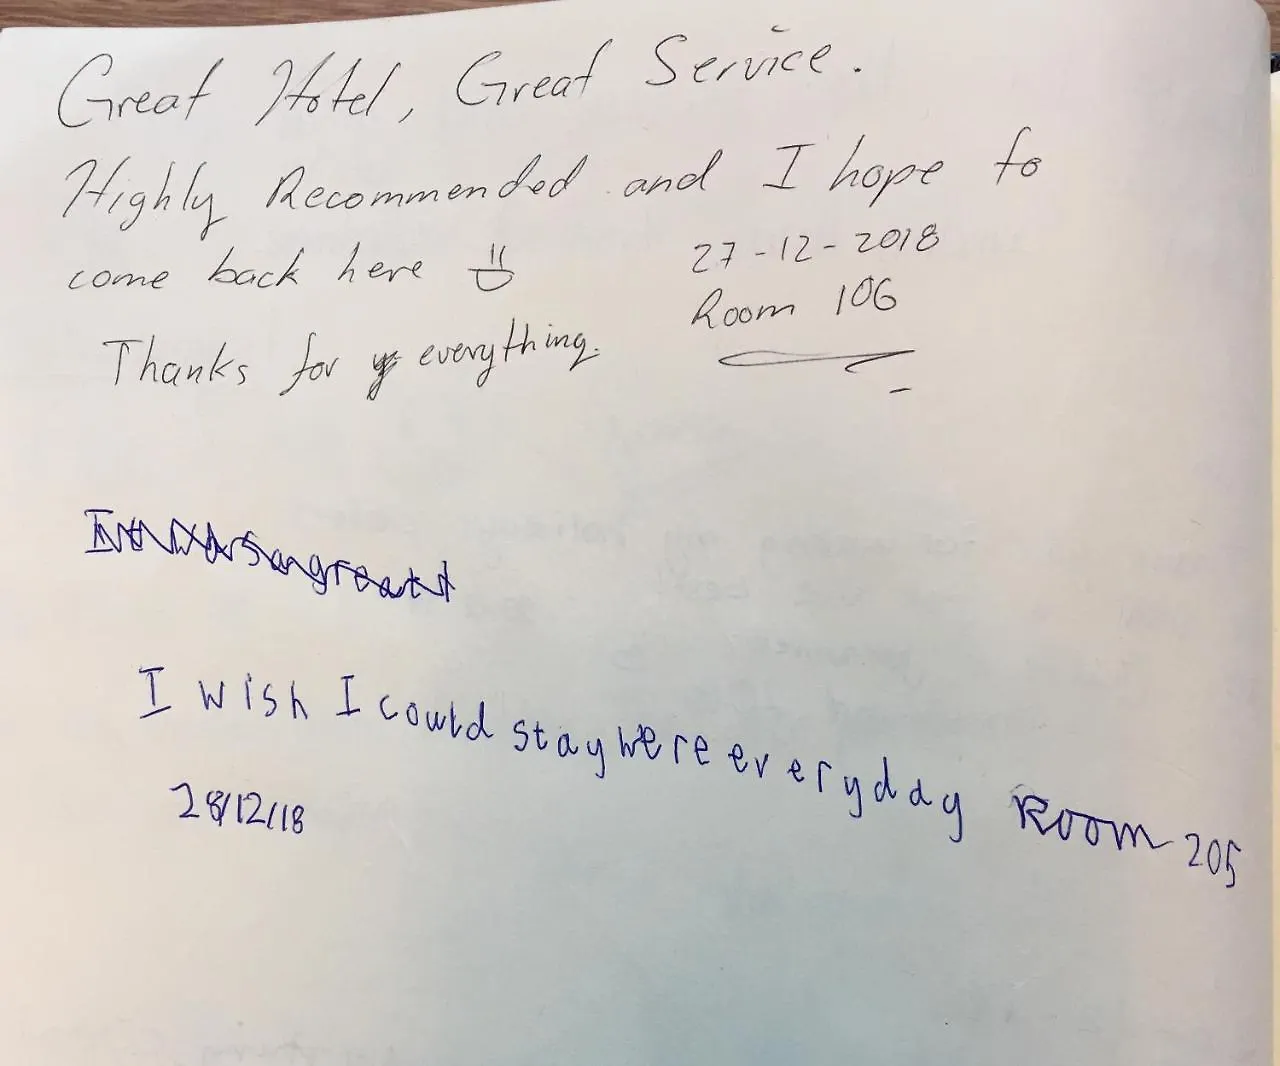 Great Hotel, Great Service.
Highly Recommended and I hope to
come back here
27-12-2018
Room 106
Thanks for everything.
I wish I could stay here everyday Room 205
28/12/18